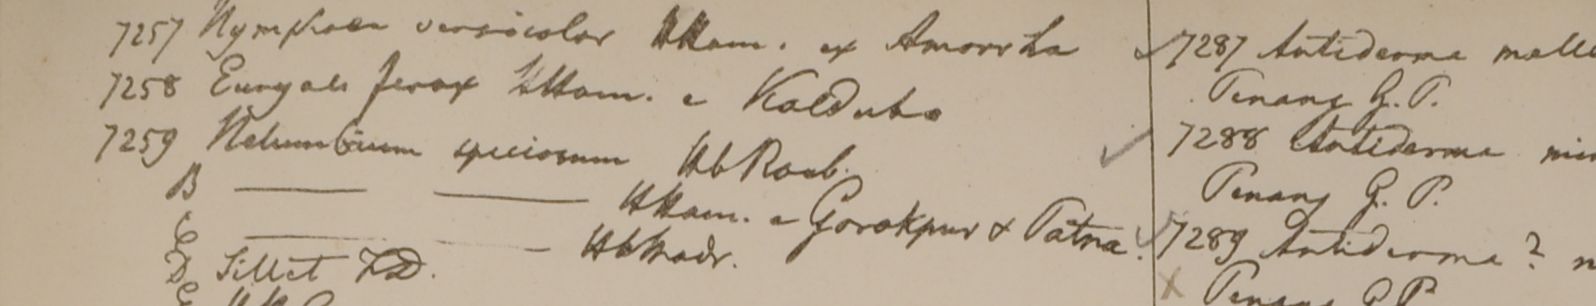 7257 Nymphaea versicolor HHam. ex Amorrha
7258 Euryale ferox HHam. e
7259 Nelumbium speciosum Hb Roxb.
B — — HHam. e Gorakpur & Patna.
C — — HbMadr.
D Sillet FD.
E
7287 Antiderma
Penang G.P.
7288 Antiderma
Penang G.P.
7289 Antiderma ?
Penang G.P.